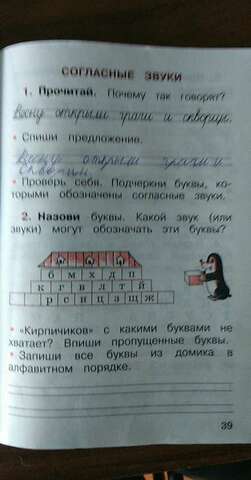 СОГЛАСНЫЕ ЗВУКИ
1. Прочитай. Почему так говорят?
Весну открыли грачи и скворцы.
• Спиши предложение.
Весну открыли грачи и
скворцы.
• Проверь себя. Подчеркни буквы, ко-
торыми обозначены согласные звуки.
2. Назови буквы. Какой звук (или
звуки) могут обозначать эти буквы?
б м х д п
к г в л т й
р с н ц з щ ж
• «Кирпичиков» с какими буквами не
хватает? Впиши пропущенные буквы.
• Запиши все буквы из домика в
алфавитном порядке.
39